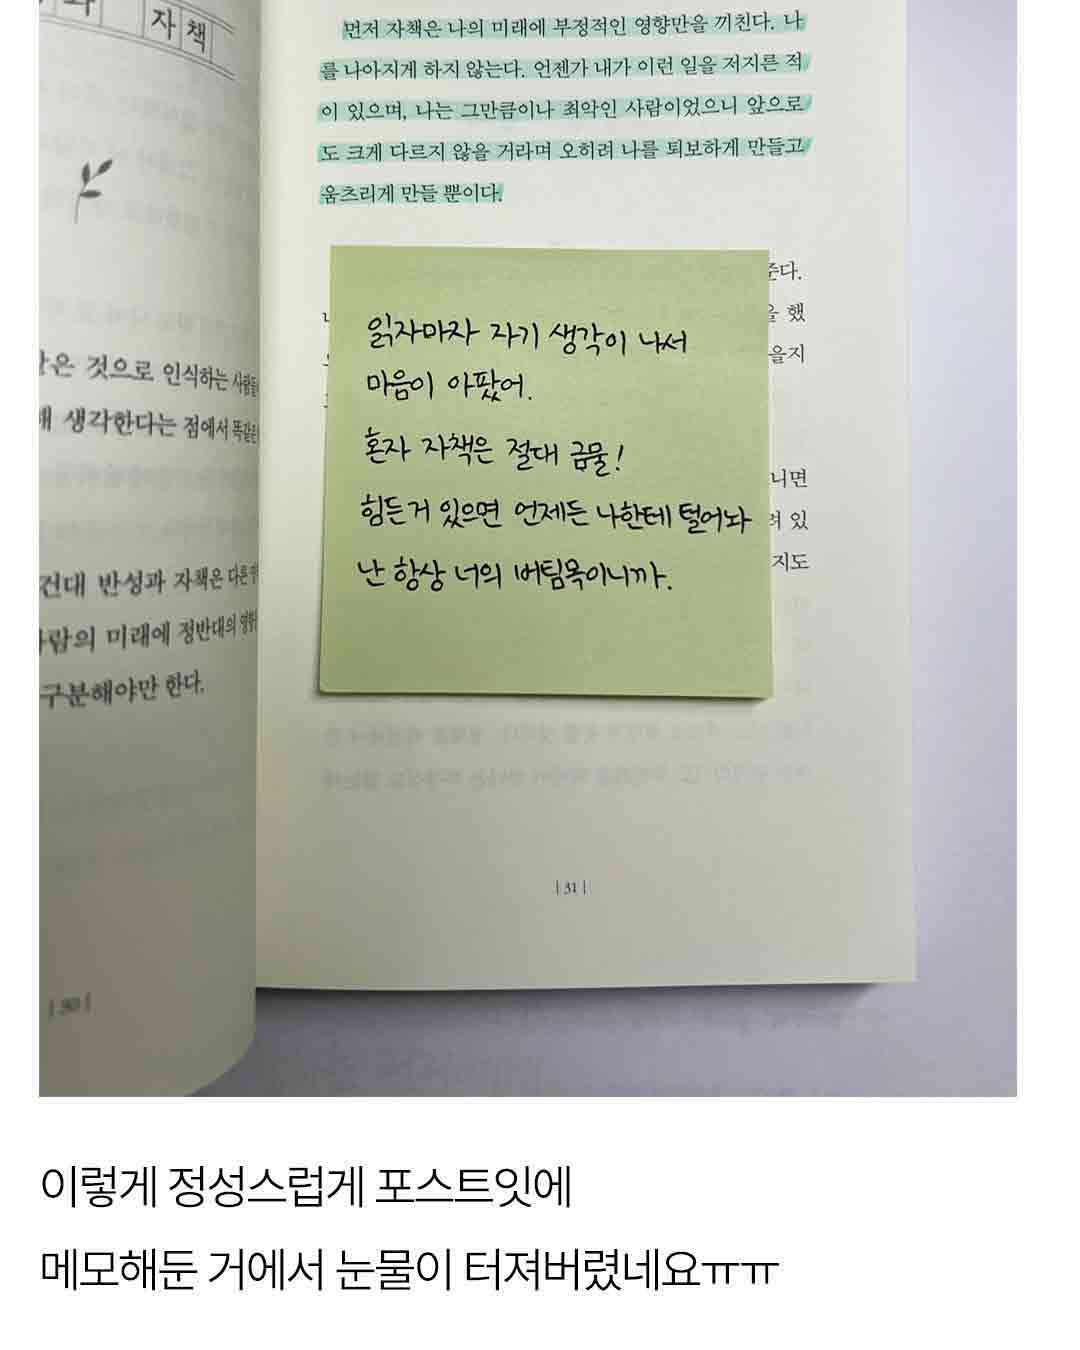 자책
은 것으로 인식하는 사람들
생각한다는 점에서 똑같은
건대 반성과 자책은 다른
람의 미래에 정반대의 영향
구분해야만 한다.
| 30 |
먼저 자책은 나의 미래에 부정적인 영향만을 끼친다. 나
를 나아지게 하지 않는다. 언젠가 내가 이런 일을 저지른 적
이 있으며, 나는 그만큼이나 최악인 사람이었으니 앞으로
도 크게 다르지 않을 거라며 오히려 나를 퇴보하게 만들고
움츠리게 만들 뿐이다.
준다.
을 했
을지
읽자마자 자기 생각이 나서
마음이 아팠어.
혼자 자책은 절대 금물!
힘든거 있으면 언제든 나한테 털어놔
난 항상 너의 버팀목이니까.
니면
려 있
지도
| 31 |
이렇게 정성스럽게 포스트잇에
메모해둔 거에서 눈물이 터져버렸네요ㅠㅠ